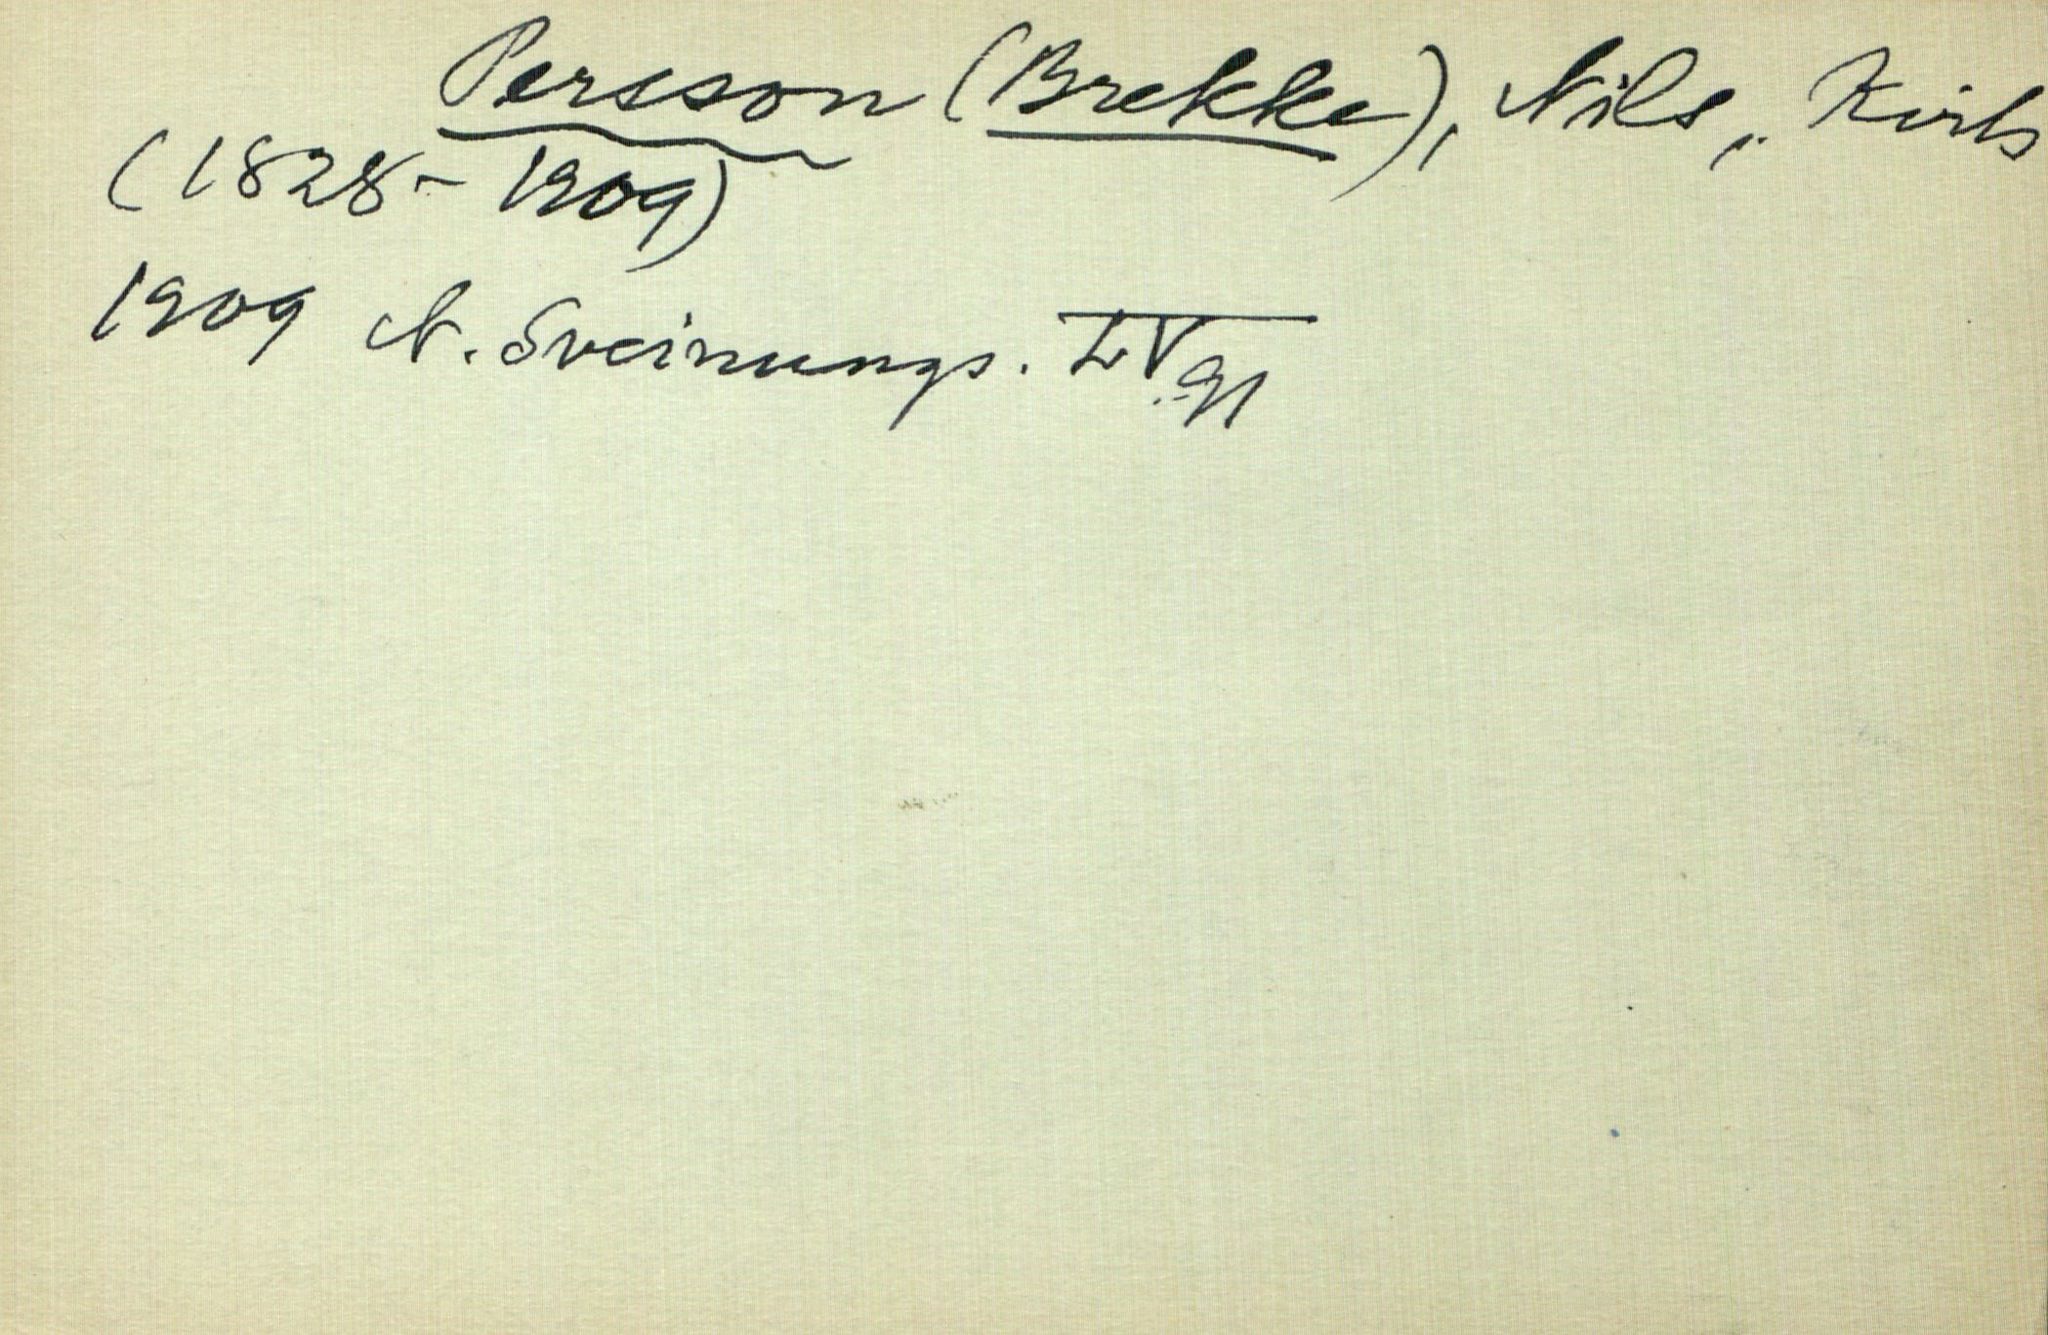 Persson (Brekke), Nils,
(1828-1909)
1909 N. Sveinungs. LV 91